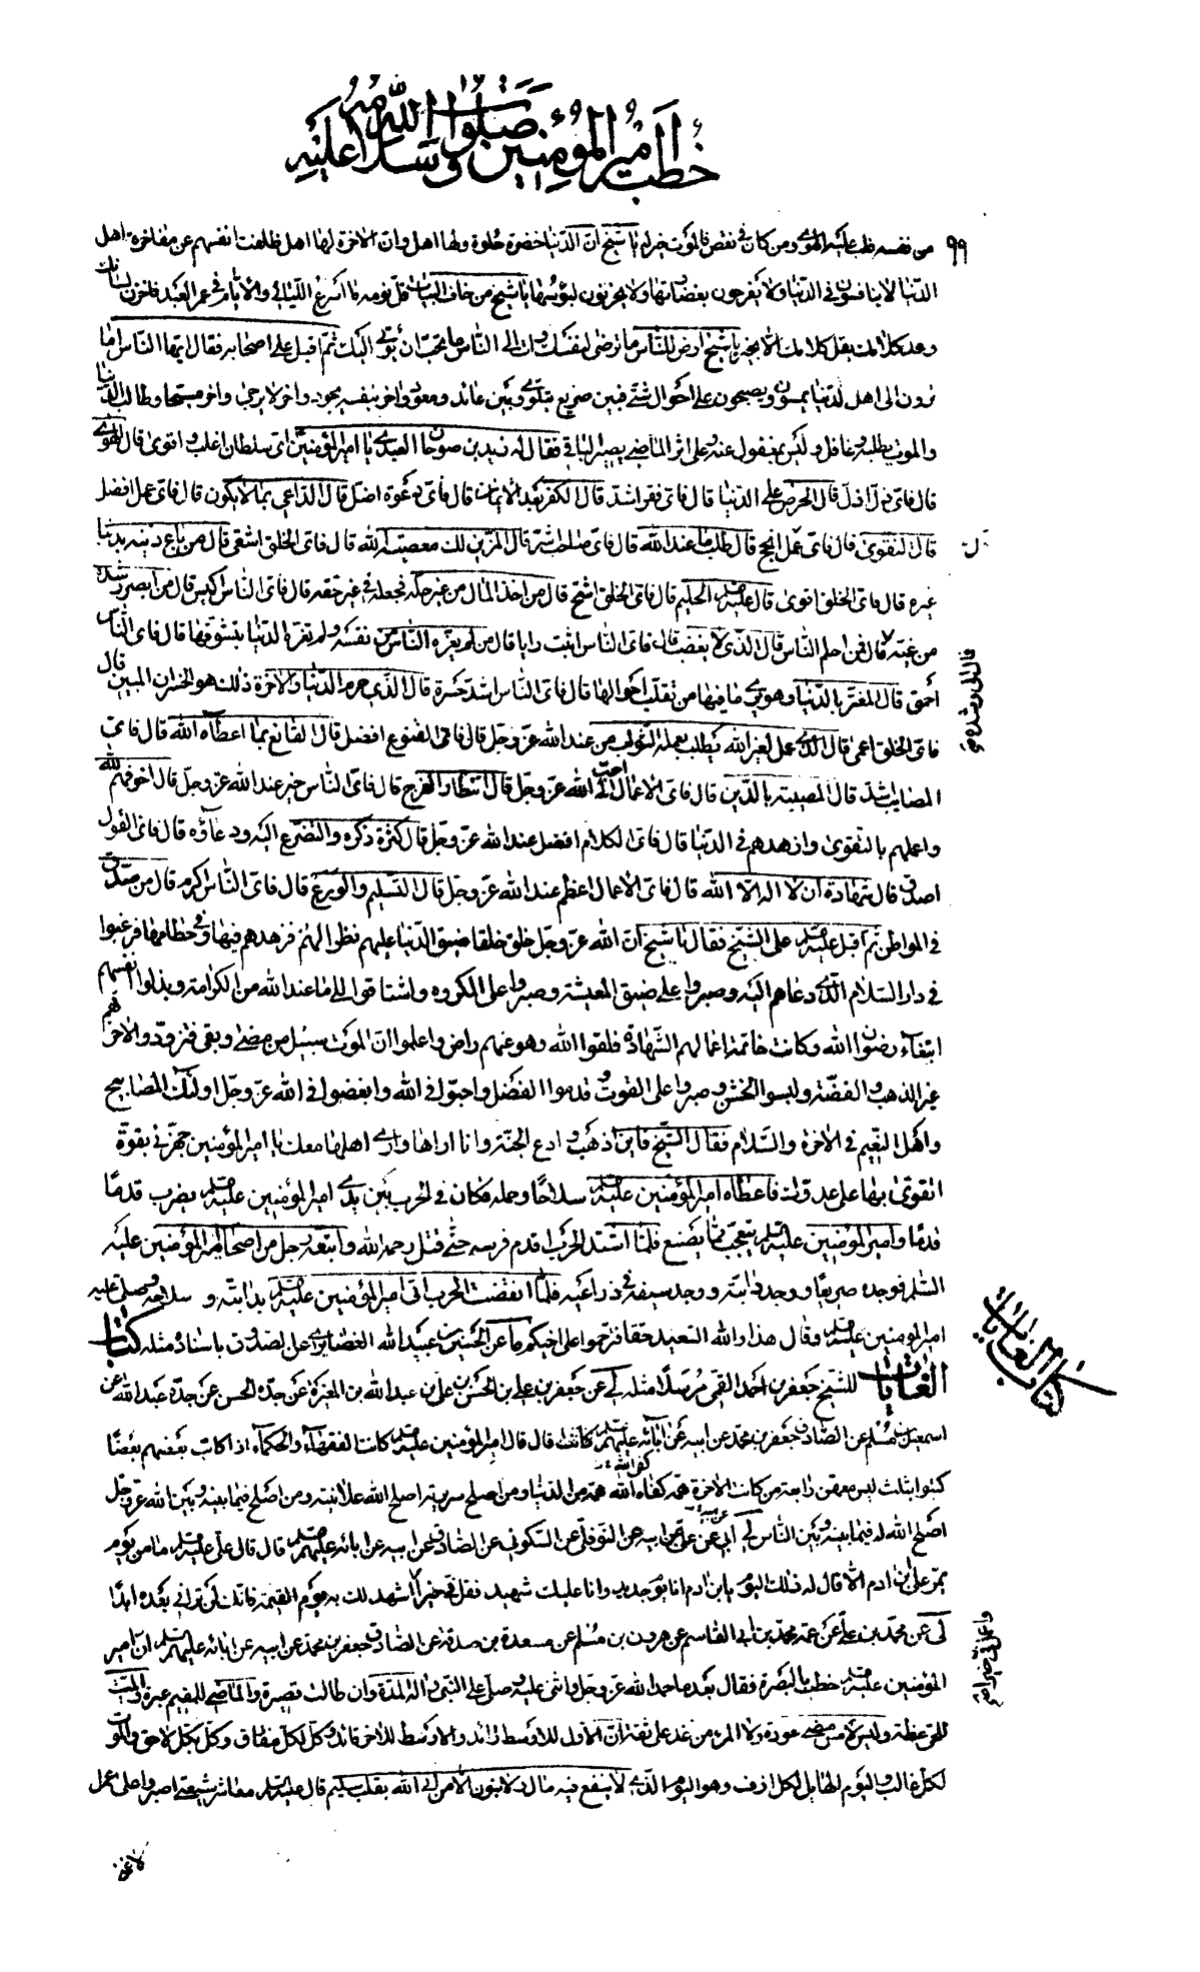 خطب امير المؤمنين صلوات الله وسلامه عليه
٩٩
من نفسه غلب عليه الهوى ومن كان في نقص فالموت خير له يا شيخ ان الدنيا خضرة حلوة ولها اهل وان الآخرة لها اهل ظلفت انفسهم عن مفاخرة اهل
الدنيا لا يتنافسون في الدنيا ولا يفرحون بغضارتها ولا يحزنون لبؤسها يا شيخ من خاف البيات قل نومه ما اسرع الليالي والأيام في عمر العبد فاخزن لسانك
وعد كلامك يقل كلامك الا بخير يا شيخ ارض للناس ما ترضى لنفسك وات الى الناس ما تحب ان يؤتى اليك ثم اقبل على اصحابه فقال ايها الناس اما
ترون الى اهل الدنيا يمسون ويصبحون على احوال شتى فبين صريع يتلوى وبين عائد ومعود واخر بنفسه يجود واخر لا يرجى واخر مسجى وطالب الدنيا
والموت يطلبه وغافل وليس بمغفول عنه وعلى اثر الماضي يصير الباقي فقال له زيد بن صوحان العبدي يا امير المؤمنين اى سلطان اغلب واقوى قال الهوى
قال فاى ذل اذل قال الحرص على الدنيا قال فاى فقر اشد قال الكفر بعد الايمان قال فاى دعوة اضل قال الداعي بما لا يكون قال فاى عمل افضل
قال التقوى قال فاى عمل انجح قال طلب ما عند الله قال فاى صاحب شر قال المزين لك معصية الله قال فاى الخلق اشقى قال من باع دينه بدنيا
غيره قال فاى الخلق اقوى قال عليه السلم الحليم قال فاى الخلق اشح قال من اخذ المال من غير حله فجعله في غير حقه قال فاى الناس اكيس قال من ابصر رشده
من غيه قال فمن احلم الناس قال الذى لا يغضب قال فاى الناس اثبت رايا قال من لم يغره الناس من نفسه ولم تغره الدنيا بتشوقها قال فاى الناس
أحمق قال المغتر بالدنيا وهو يرى ما فيها من تقلب احوالها قال فاى الناس اشد حسرة قال الذى حرم الدنيا والآخرة ذلك هو الخسران المبين قال
فاى الخلق اعمى قال الذى عمل لغير الله يطلب بعمله الثواب من عند الله عز وجل قال فاى القنوع افضل قال القانع بما اعطاه الله قال فاى
المصايب اشد قال المصيبة بالدين قال فاى الاعمال احب الى الله عز وجل قال انتظار الفرج قال فاى الناس خير عند الله عز وجل قال اخوفهم لله
واعلمهم بالتقوى وازهدهم في الدنيا قال فاى الكلام افضل عند الله عز وجل قال كثرة ذكره والتضرع اليه ودعاؤه قال فاى القول
اصدق قال شهادة ان لا اله الا الله قال فاى الاعمال اعظم عند الله عز وجل قال التسليم والورع قال فاى الناس اكرم قال من صدق
في المواطن ثم اقبل عليه السلم على الشيخ فقال يا شيخ ان الله عز وجل خلق خلقا ضيق الدنيا عليهم نظرا لهم فزهدهم فيها وفي حطامها فرغبوا
في دار السلام الذى دعاهم اليه وصبروا على ضيق المعيشة وصبروا على المكروه واشتاقوا الى ما عند الله من الكرامة وبذلوا انفسهم
ابتغاء رضوان الله وكانت خاتمة اعمالهم الشهادة فلقوا الله وهو عنهم راض واعلموا ان الموت سبيل من مضى وبقى فتزودوا لآخرتهم
غير الذهب والفضة ولبسوا الخشن وصبروا على القوت وقدموا الفضل واحبوا في الله وابغضوا في الله عز وجل اولئك المصابيح
واهل النعيم في الاخرة والسلام فقال الشيخ فاين اذهب وادع الجنة وانا اراها وارى اهلها معك يا امير المؤمنين جهزني بقوة
اتقوى بها على عدوك فاعطاه امير المؤمنين عليه السلم سلاحا وحمله فكان في الحرب بين يدى امير المؤمنين عليه السلم يضرب قدما
قدما وامير المؤمنين عليه السلم يتعجب مما يصنع فلما اشتد الحرب اقدم فرسه حتى قتل رحمه الله واتبعه رجل من اصحاب امير المؤمنين عليه
السلم فوجده صريعا ووجد دابته ووجد سيفه في ذراعيه فلما انقضت الحرب اتى امير المؤمنين عليه السلم بدابته وسلاحه وصلى عليه
امير المؤمنين عليه السلم وقال هذا والله السعيد حقا فترحموا على اخيكم ما عن الحسين بن عبيد الله الغضايرى عن الصدوق باسناده مثله كتاب
الغايات للشيخ جعفر بن احمد القمي مرسلا مثله لى عن جعفر بن على بن الحسن بن على بن عبد الله بن المغيرة عن جده الحسن عن جده عبد الله عن
اسمعيل بن مسلم عن الصادق جعفر بن محمد عن ابيه عن آبائه عليهم السلم قال قال امير المؤمنين عليه السلم كانت الفقهاء والحكماء اذا كاتب بعضهم بعضا
كتبوا بثلث ليس معهن رابعة من كانت الآخرة همه كفاه الله همه من الدنيا ومن اصلح سريرته اصلح الله علانيته ومن اصلح فيما بينه وبين الله عز وجل
اصلح الله له فيما بينه وبين الناس لى ابى عن على عن ابيه عن النوفلي عن السكوني عن الصادق عن ابيه عن ابائه عليهم السلم قال قال على عليه السلم ما من يوم
يمر على ابن ادم الا قال له ذلك اليوم يابن ادم انا يوم جديد وانا عليك شهيد فقل في خيرا اشهد لك به يوم القيمة فانك لن تراني بعده ابدا
لى عن محمد بن على عن عمه محمد بن ابى القاسم عن هرون بن مسلم عن مسعدة بن صدقة عن الصادق جعفر بن محمد عن ابيه عن ابائه عليهم السلم ان امير
المؤمنين عليه السلم خطب بالبصرة فقال بعد ما حمد الله عز وجل واثنى عليه وصلى على النبي واله المدة وان طالت قصيرة والماضي للمقيم عبرة والميت
للحى عظة وليس لأمس مضى عودة ولا المرء من غد على ثقة ان الأول للاوسط رائد والاوسط للاخر قائد وكل لكل مفارق وكل بكل لاحق والموت
لكل غالب واليوم الهايل لكل ازف وهو اليوم الذى لا ينفع فيه مال ولا بنون الا من اتى الله بقلب سليم ثم قال عليه السلم معاشر شيعتي اصبروا على عمل
كتاب الغايات
واعمل في خيرا
لا غنى